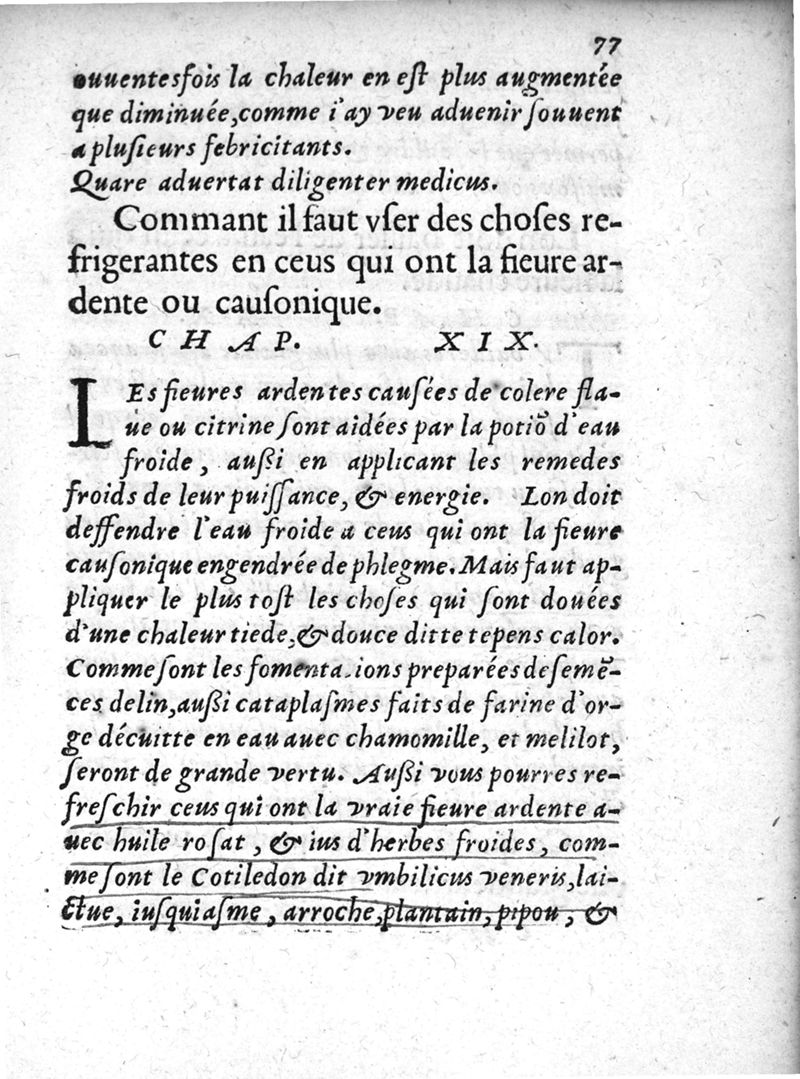 77
ouuentesfois la chaleur en eſt plus augmentée
que diminuée, comme i'ay veu aduenir ſouuent
a pluſieurs febricitants.
Quare aduertat diligenter medicus.
Commant il faut vſer des choſes re-
frigerantes en ceus qui ont la fieure ar-
dente ou cauſonique.
CHAP. XIX.
LEs fieures ardentes cauſées de colere fla-
ue ou citrine ſont aidées par la potiō d'eau
froide, auſſi en applicant les remedes
froids de leur puiſſance, & energie. Lon doit
deffendre l'eau froide a ceus qui ont la fieure
cauſonique engendrée de phlegme. Mais faut ap-
pliquer le plus toſt les choſes qui ſont douées
d'une chaleur tiede, & douce ditte tepens calor.
Comme ſont les fomentaions preparées de ſemē-
ces de lin, auſſi cataplaſmes faits de farine d'or-
ge décuitte en eau auec chamomille, et melilot,
ſeront de grande vertu. Auſſi vous pourres re-
freſchir ceus qui ont la vraie fieure ardente a-
uec huile roſat, & ius d'herbes froides, com-
me ſont le Cotiledon dit vmbilicus veneris, lai-
ctue, iuſquiaſme, arroche, plantain, pipou, &